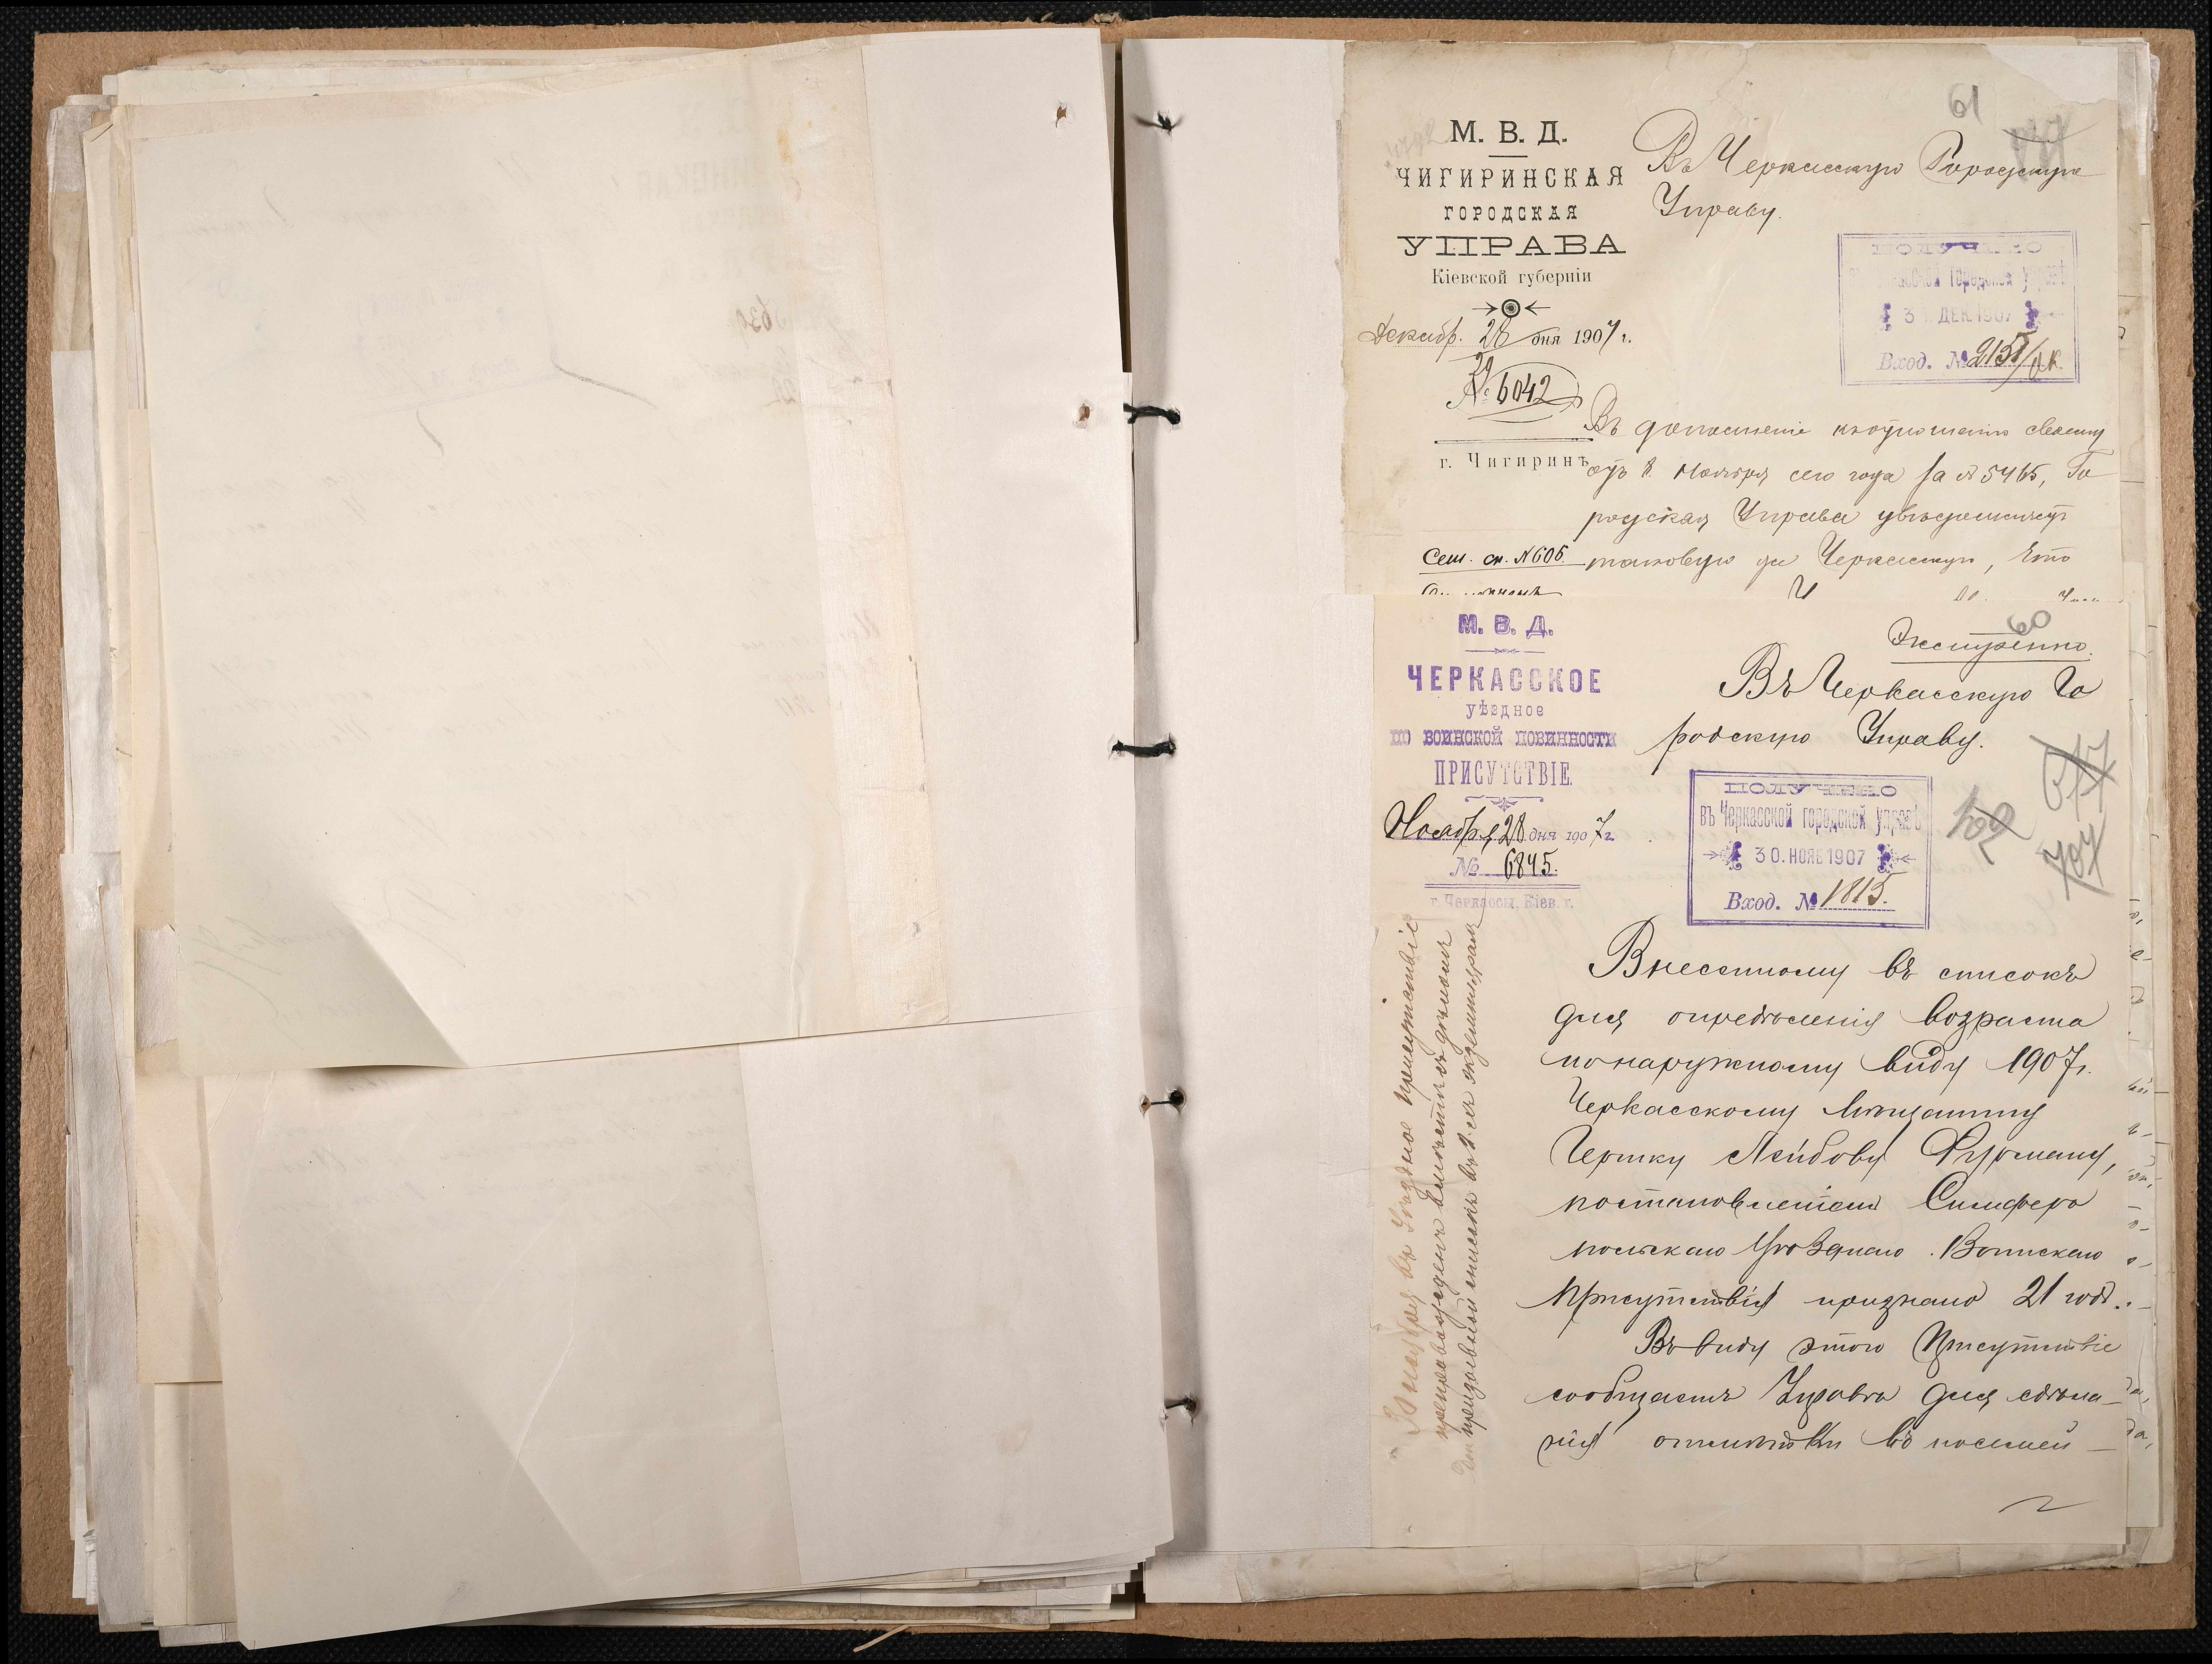 61
М. В. Д.
ЧИГИРИНСКАЯ
ГОРОДСКАЯ
УПРАВА
Кіевской губерніи
Декабр. 28 дня 1907 г.
№ 6042
г. Чигиринъ
Въ Черкасскую Городскую
Управу.
ПОЛУЧЕНО
въ Черкасской городской управѣ
31 ДЕК. 1907
Вход. № 2151
Въ дополненіе къ отношенію своему
отъ 8 Ноября сего года за № 5465, Го
родская Управа увѣдомляетъ
Сем. сп. № 606.
таковую же Черкасскую, что
60
М. В. Д.
ЧЕРКАССКОЕ
уѣздное
по воинской повинности
ПРИСУТСТВІЕ.
Ноября 28 дня 1907 г.
№ 6845.
г. Черкассы, Кіев. г.
Экстренно.
Въ Черкасскую Го
родскую Управу.
ПОЛУЧЕНО
въ Черкасской городской управѣ
30. НОЯБ 1907
Вход. № 1815.
707
Внесенному въ списокъ
для опредѣленія возраста
по наружному виду 1907 г.
Черкасскому мѣщанину
Гершку Лейбову Фурману,
постановленіемъ Симферо
польскаго Уѣзднаго Воинскаго
Присутствія признано 21 годъ.
Въ виду этого Присутствіе
сообщаетъ Управѣ для сдѣла-
нія отмѣтки въ посемей-
въ Уѣздное присутствіе
препровожденъ вмѣстѣ съ другими
призывными списками въ 2-хъ экземплярахъ